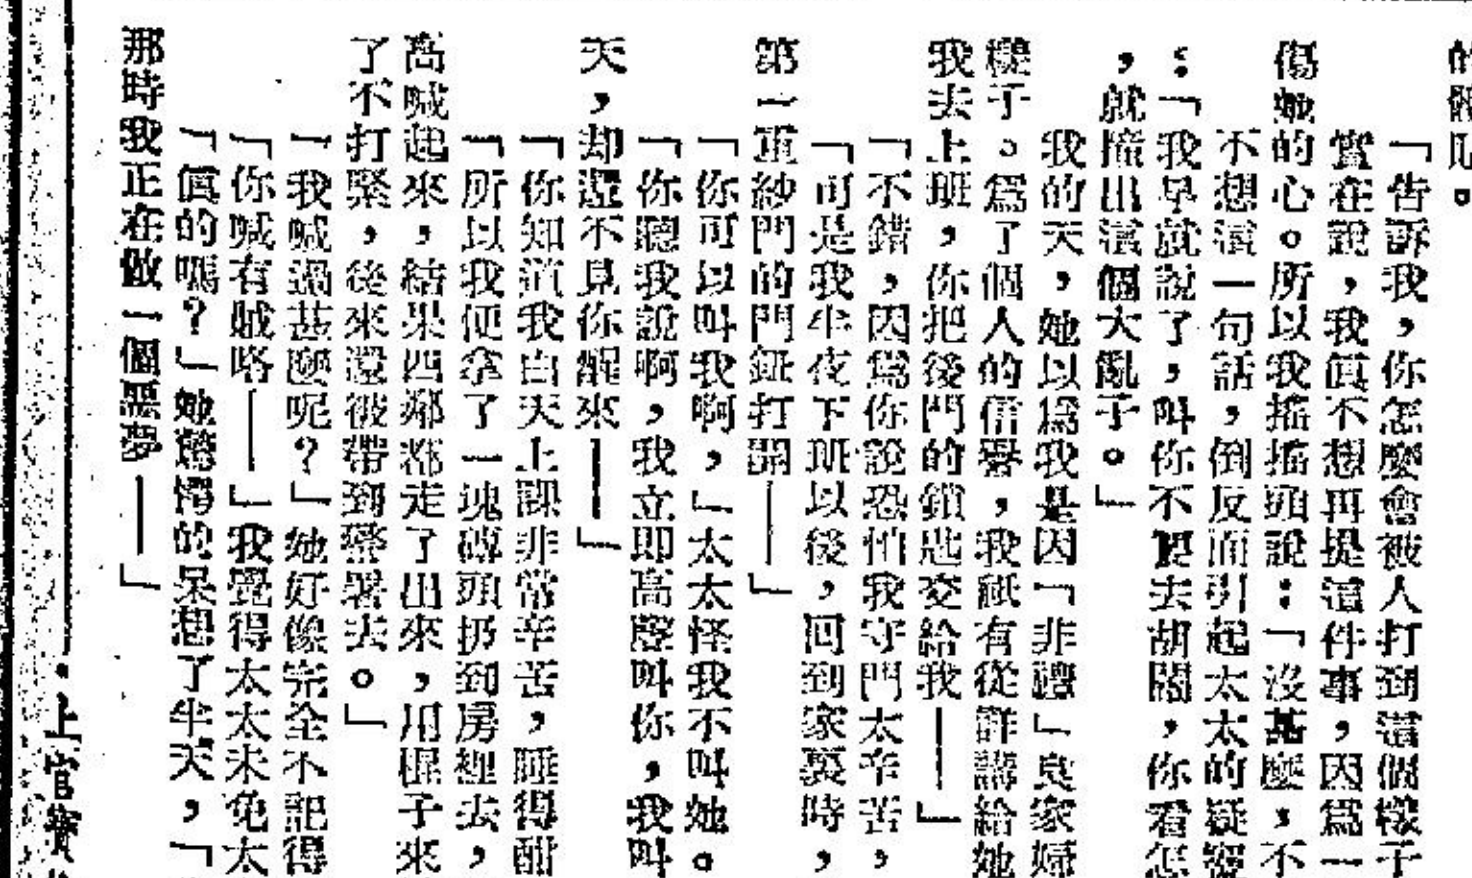 的體貼。
「告訴我，你怎麼會被人打到這個樣子
實在說，我真不想再提這件事，因爲一
傷她的心。所以我搖搖頭說：「沒甚麼，不
不想這一句話，倒反而引起太太的疑竇
：「我早就說了，叫你不要去胡鬧，你看怎
，就撞出這個大亂子。」
我的天，她以爲我是因「非禮」良家婦
樣子。爲了個人的信譽，我祇有從詳講給她
我去上班，你把後門的鎖匙交給我——」
「不錯，因爲你說恐怕我守門太辛苦，
「可是我半夜下班以後，回到家裏時，
第一重紗門的門鈕打開——」
「你可以叫我啊，」太太怪我不叫她。
「你聽我說啊，我立即高聲叫你，我叫
天，却還不見你醒來——」
「你知道我白天上課非常辛苦，睡得酣
「所以我便拿了一塊磚頭扔到房裡去，
高喊起來，結果四鄰都走了出來，用棍子來
了不打緊，後來還被帶到警署去。」
「我喊過甚麼呢？」她好像完全不記得
「你喊有賊咯——」我覺得太太未免太
「眞的嗎？」她驚愕的呆想了半天，「
那時我正在做一個噩夢——」
·上官寶